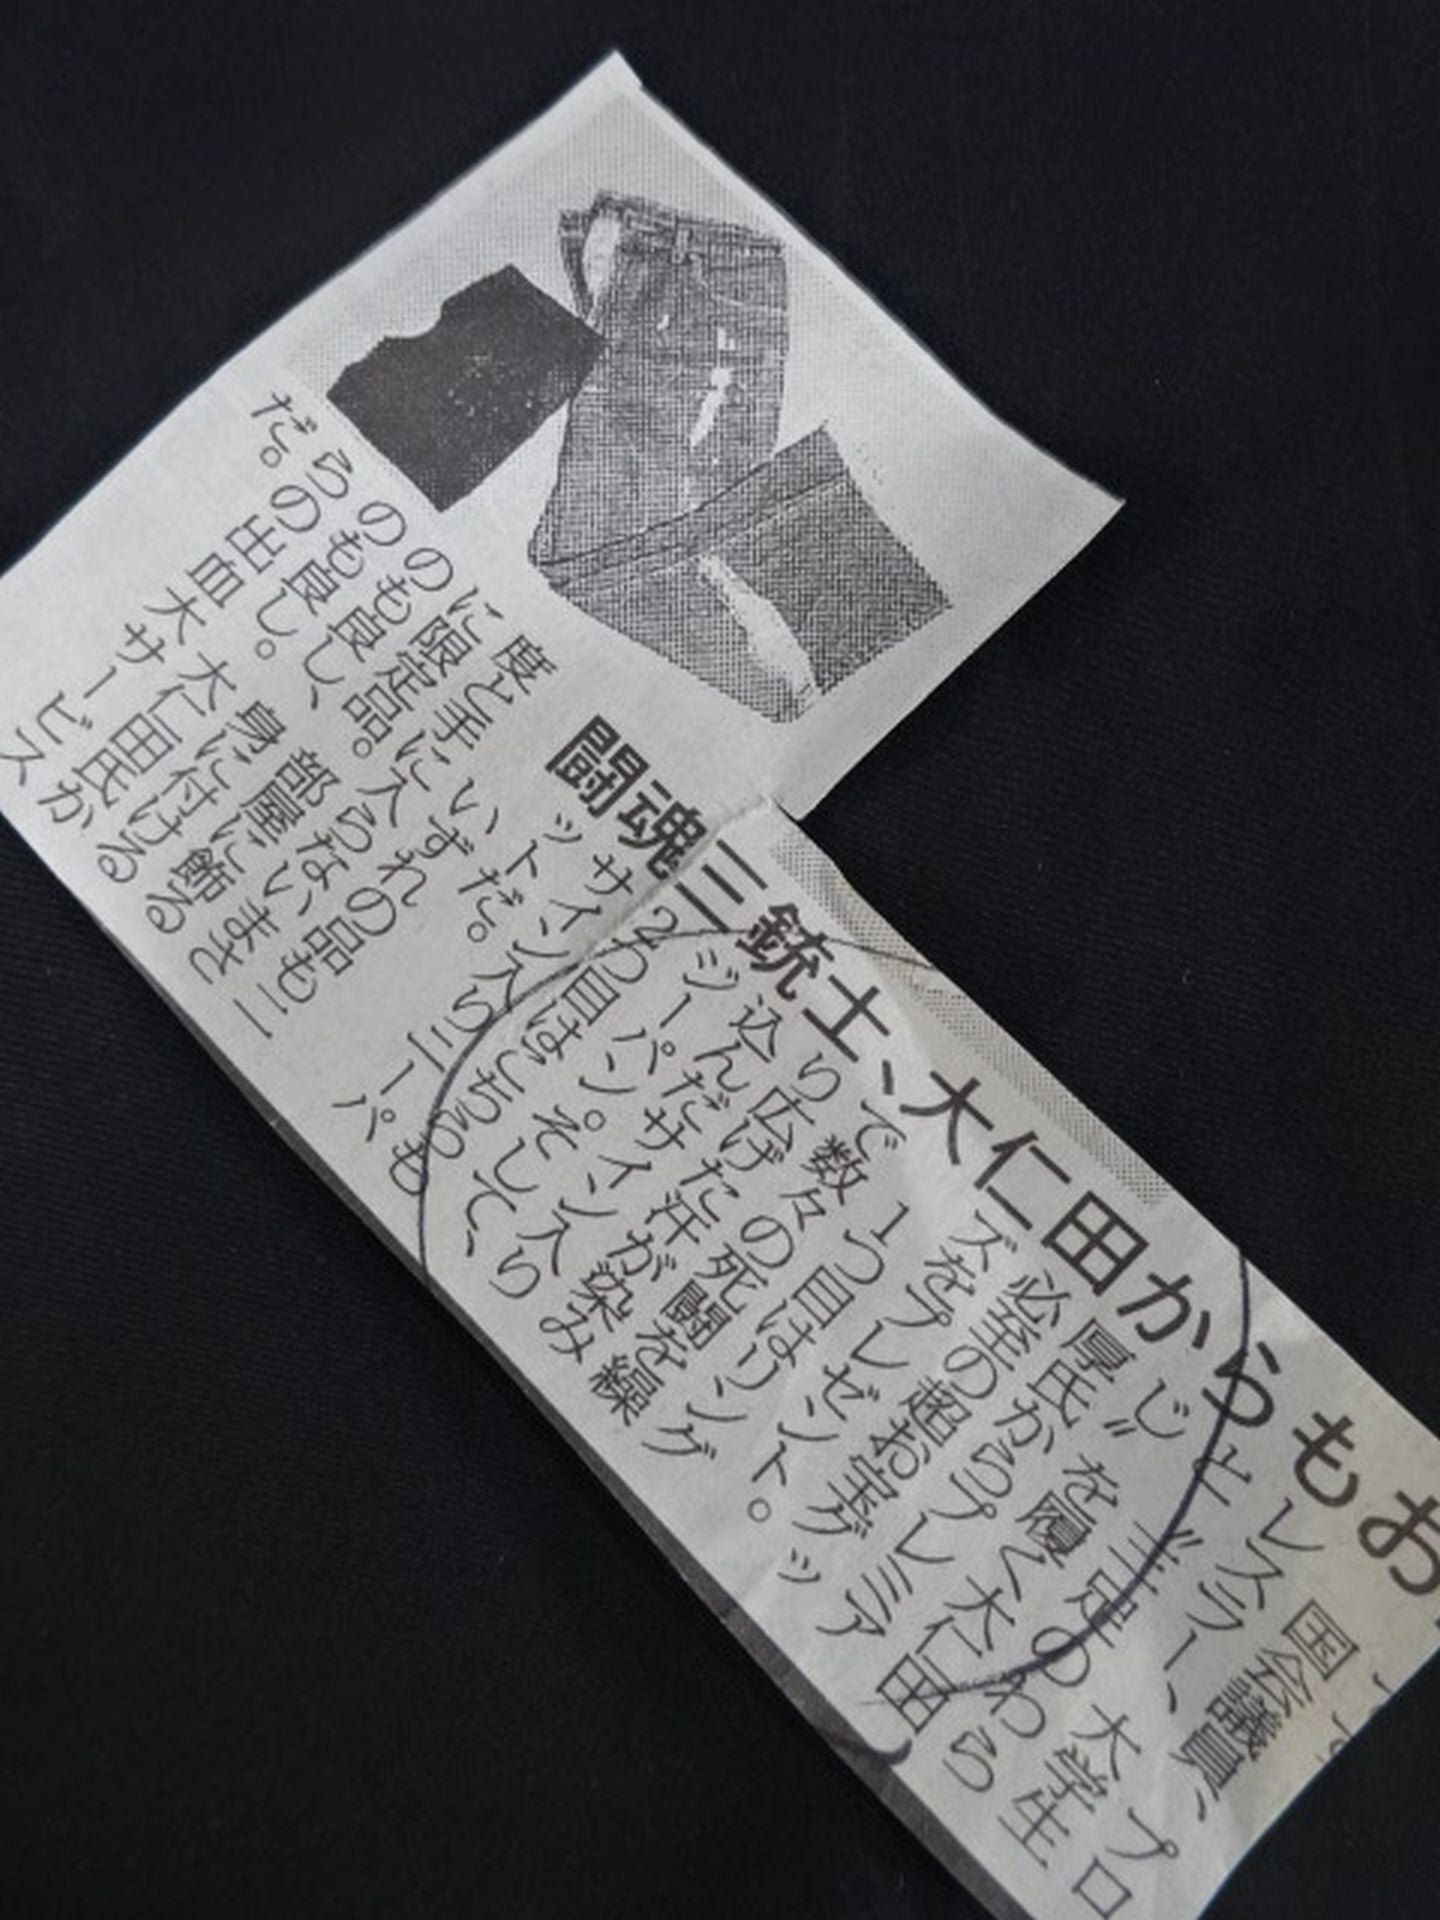 闘魂三銃士、大仁田からもお
国会議員、プロ
レスラー、大学生
と〝三足のわら
じ〟を履く大仁田
厚氏からプレミア
必至の超お宝グッ
ズをプレゼント。
1つ目はリング
で数々の死闘を繰
り広げた汗が染み
込んだサイン入り
ジーパン。そして、
2つ目はこちらも
サイン入りニーパ
ットだ。
いずれの品も二
度と手に入らないまさ
に限定品。部屋に飾る
のも良し、身に付ける
のも良し。大仁田氏か
らの出血大サービス
だ。